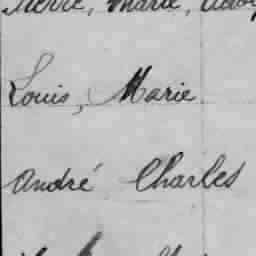 Pierre, Marie,
Louis, Marie
André Charles